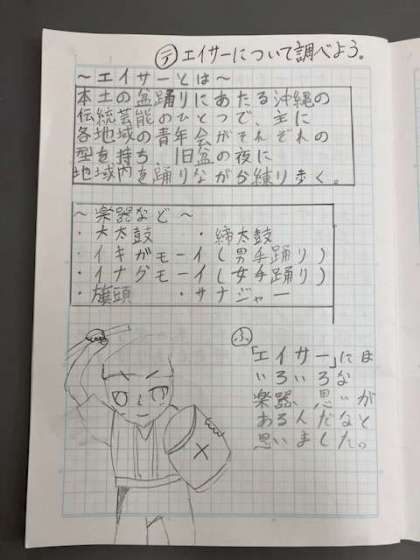 テ エイサーについて調べよう。
～エイサーとは～
本土の盆踊りにあたる沖縄の
伝統芸能のひとつで、主に
各地域の青年会がそれぞれの
型を持ち、旧盆の夜に
地域内を踊りながら練り歩く。
～楽器など～
・大太鼓 ・締太鼓
・イキガモーイ(男手踊り)
・イナグモーイ(女手踊り)
・旗頭 ・サナジャー
ふ
「エイサー」には
いろいろな
楽器、思いが
あるんだなと
思いました。